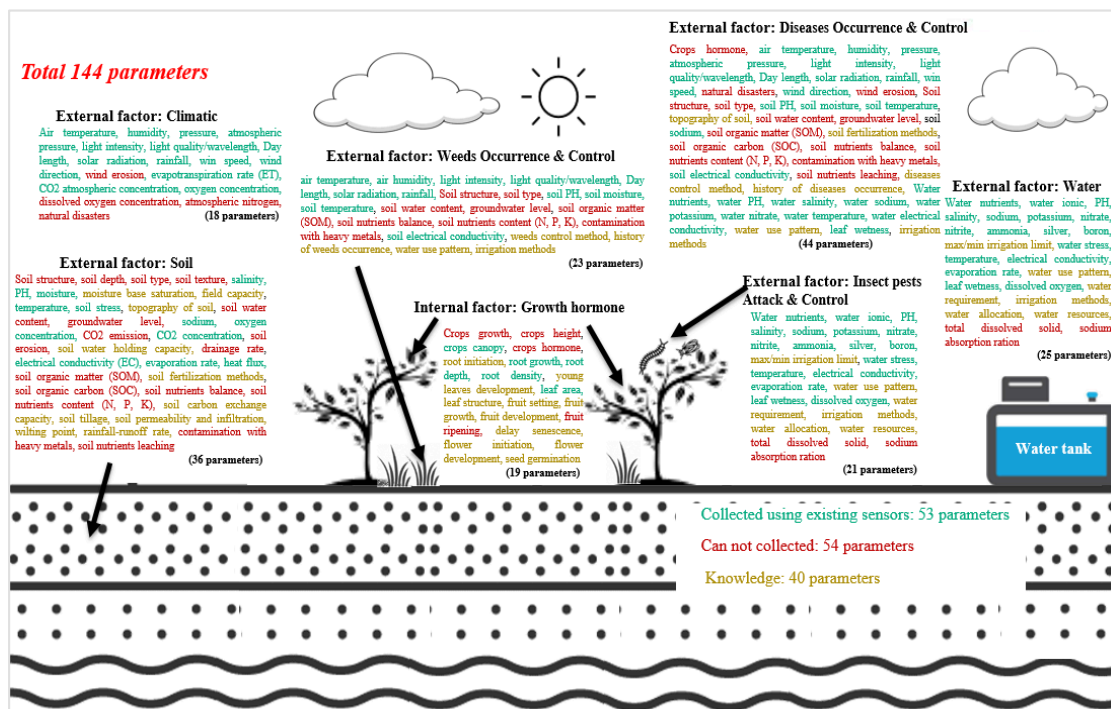 Total 144 parameters
External factor: Climatic
Air temperature, humidity, pressure, atmospheric
pressure, light intensity, light quality/wavelength, Day
length, solar radiation, rainfall, win speed, wind
direction, wind erosion, evapotranspiration rate (ET),
CO2 atmospheric concentration, oxygen concentration,
dissolved oxygen concentration, atmospheric nitrogen,
natural disasters (18 parameters)
External factor: Soil
Soil structure, soil depth, soil type, soil texture, salinity,
PH, moisture, moisture base saturation, field capacity,
temperature, soil stress, topography of soil, soil water
content, groundwater level, sodium, oxygen
concentration, CO2 emission, CO2 concentration, soil
erosion, soil water holding capacity, drainage rate,
electrical conductivity (EC), evaporation rate, heat flux,
soil organic matter (SOM), soil fertilization methods,
soil organic carbon (SOC), soil nutrients balance, soil
nutrients content (N, P, K), soil carbon exchange
capacity, soil tillage, soil permeability and infiltration,
wilting point, rainfall-runoff rate, contamination with
heavy metals, soil nutrients leaching
(36 parameters)
External factor: Weeds Occurrence & Control
air temperature, air humidity, light intensity, light quality/wavelength, Day
length, solar radiation, rainfall, Soil structure, soil type, soil PH, soil moisture,
soil temperature, soil water content, groundwater level, soil organic matter
(SOM), soil nutrients balance, soil nutrients content (N, P, K), contamination
with heavy metals, soil electrical conductivity, weeds control method, history
of weeds occurrence, water use pattern, irrigation methods
(23 parameters)
Internal factor: Growth hormone
Crops growth, crops height,
crops canopy, crops hormone,
root initiation, root growth, root
depth, root density, young
leaves development, leaf area,
leaf structure, fruit setting, fruit
growth, fruit development, fruit
ripening, delay senescence,
flower initiation, flower
development, seed germination
(19 parameters)
External factor: Diseases Occurrence & Control
Crops hormone, air temperature, humidity, pressure,
atmospheric pressure, light intensity, light
quality/wavelength, Day length, solar radiation, rainfall, win
speed, natural disasters, wind direction, wind erosion, Soil
structure, soil type, soil PH, soil moisture, soil temperature,
topography of soil, soil water content, groundwater level, soil
sodium, soil organic matter (SOM), soil fertilization methods,
soil organic carbon (SOC), soil nutrients balance, soil
nutrients content (N, P, K), contamination with heavy metals,
soil electrical conductivity, soil nutrients leaching, diseases
control method, history of diseases occurrence, Water
nutrients, water PH, water salinity, water sodium, water
potassium, water nitrate, water temperature, water electrical
conductivity, water use pattern, leaf wetness, irrigation
methods (44 parameters)
External factor: Insect pests
Attack & Control
Water nutrients, water ionic, PH,
salinity, sodium, potassium, nitrate,
nitrite, ammonia, silver, boron,
max/min irrigation limit, water stress,
temperature, electrical conductivity,
evaporation rate, water use pattern,
leaf wetness, dissolved oxygen, water
requirement, irrigation methods,
water allocation, water resources,
total dissolved solid, sodium
absorption ration
(21 parameters)
External factor: Water
Water nutrients, water ionic, PH,
salinity, sodium, potassium, nitrate,
nitrite, ammonia, silver, boron,
max/min irrigation limit, water stress,
temperature, electrical conductivity,
evaporation rate, water use pattern,
leaf wetness, dissolved oxygen, water
requirement, irrigation methods,
water allocation, water resources,
total dissolved solid, sodium
absorption ration
(25 parameters)
Water tank
Collected using existing sensors: 53 parameters
Can not collected: 54 parameters
Knowledge: 40 parameters